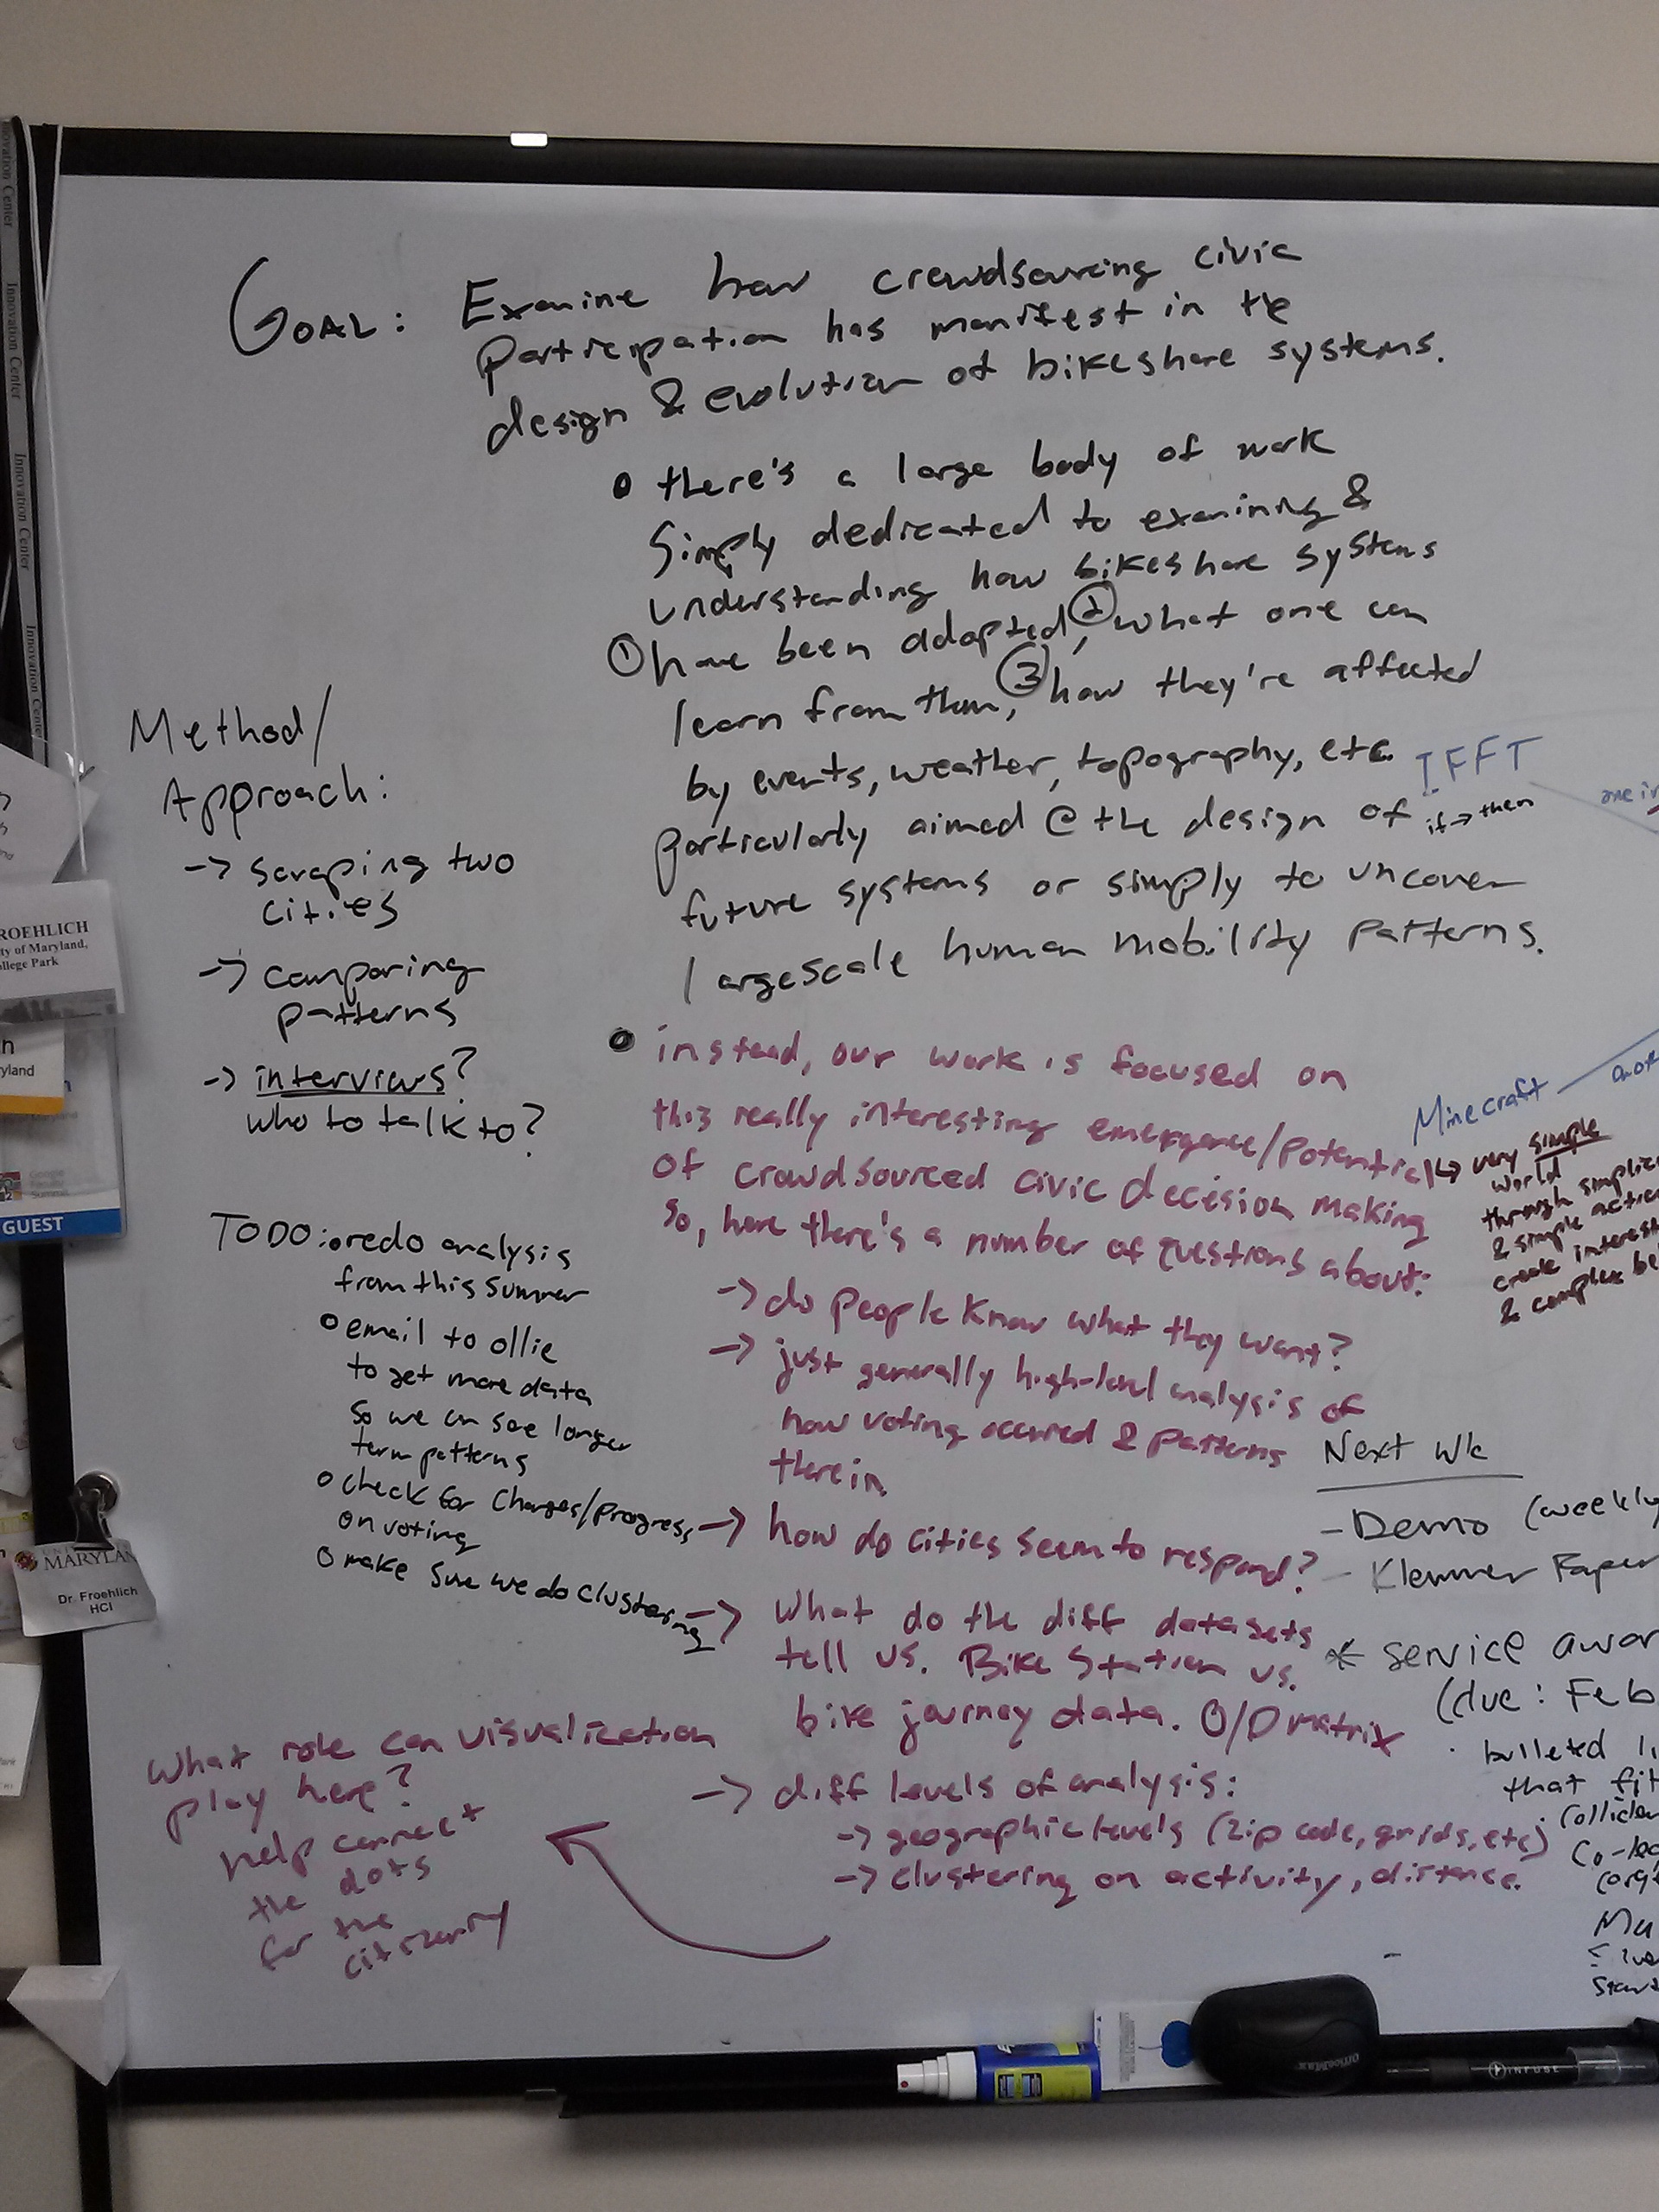 GOAL: Examine how crowdsourcing civic
participation has manifest in the
design & evolution of bikeshare systems.
• there's a large body of work
simply dedicated to examining &
understanding how bikeshare systems
① have been adapted, ② what one can
learn from them, ③ how they're affected
by events, weather, topography, etc.
particularly aimed @ the design of
future systems or simply to uncover
largescale human mobility patterns.
• instead, our work is focused on
this really interesting emergence/potential
of crowdsourced civic decision making
So, here there's a number of questions about:
-> do people know what they want?
-> just generally high-level analysis of
how voting occured & patterns
therein
-> how do cities seem to respond?
-> What do the diff datasets
tell us. Bike Station vs.
bike journey data. O/D matrix
-> diff levels of analysis:
-> geographic levels (zip code, grids, etc)
-> clustering on activity, distance.
Method/
Approach:
-> scraping two
cities
-> comparing
patterns
-> interviews?
who to talk to?
TODO: o redo analysis
from this summer
o email to ollie
to get more data
so we can see longer
term patterns
o check for changes/progress
on voting
o make sure we do clustering
What role can visualization
play here?
help connect
the dots
for the
citizenry
IFFT
if -> then
one in
Minecraft
↳ very simple
world
through simplic
& simple action
create interest
& complex be
Next Wk
- Demo (weekly
- Klemmer Paper
* service awar
(due: Feb
· bulleted li
that fit
Co-le
Innovation Center
Innovation Center
Innovation Center
Innovation Center
Innovation Center
ROEHLICH
ty of Maryland,
llege Park
n
ryland
GUEST
MARYLAN
Dr. Froehlich
HCI
OfficeMax
INFUSE